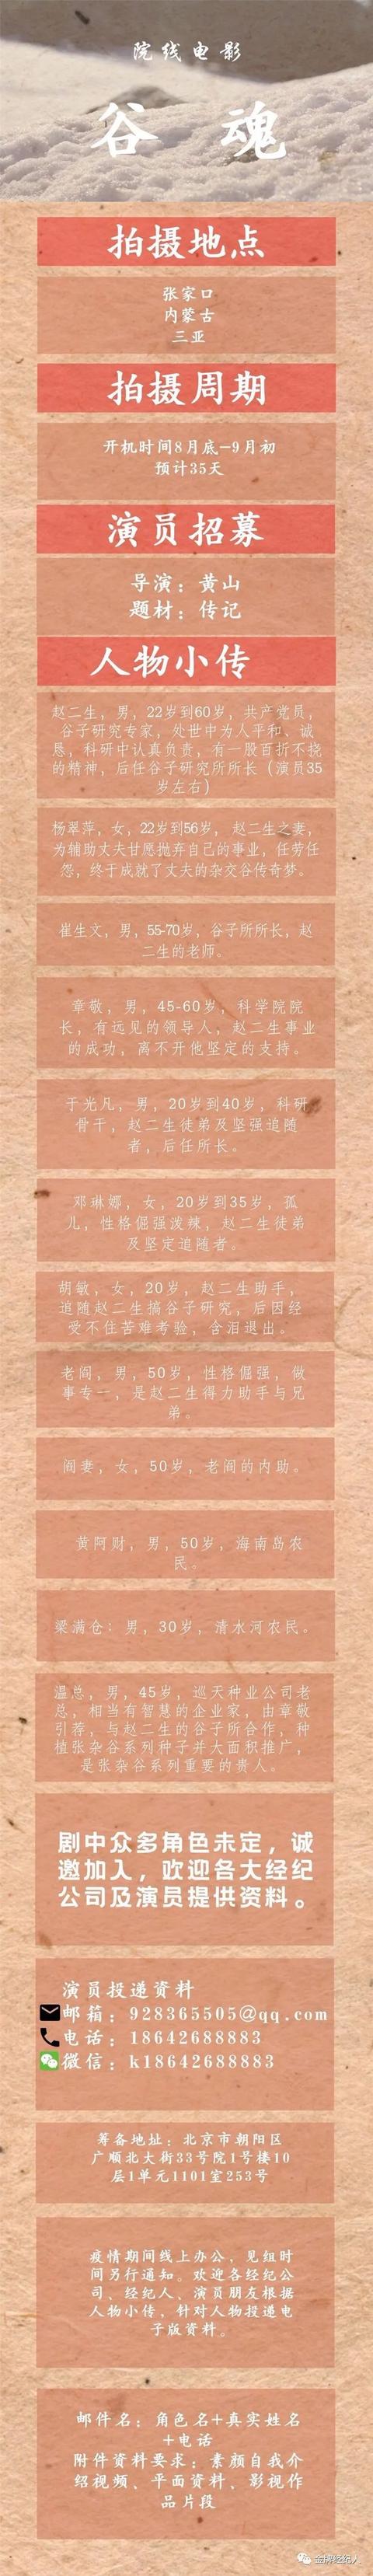 院线电影
谷 魂
拍摄地点
张家口
内蒙古
三亚
拍摄周期
开机时间8月底-9月初
预计35天
演员招募
导演：黄山
题材：传记
人物小传
赵二生，男，22岁到60岁，共产党员，
谷子研究专家，处世中为人平和、诚
恳，科研中认真负责，有一股百折不挠
的精神，后任谷子研究所所长（演员35
岁左右）
杨翠萍，女，22岁到56岁，赵二生之妻，
为辅助丈夫甘愿抛弃自己的事业，任劳任
怨，终于成就了丈夫的杂交谷传奇梦。
崔生文，男，55-70岁，谷子所所长，赵
二生的老师。
章敬，男，45-60岁，科学院院
长，有远见的领导人，赵二生事业
的成功，离不开他坚定的支持。
于光凡，男，20岁到40岁，科研
骨干，赵二生徒弟及坚强追随
者，后任所长。
邓琳娜，女，20岁到35岁，孤
儿，性格倔强泼辣，赵二生徒弟
及坚定追随者。
胡敏，女，20岁，赵二生助手，
追随赵二生搞谷子研究，后因经
受不住苦难考验，含泪退出。
老阎，男，50岁，性格倔强，做
事专一，是赵二生得力助手与兄
弟。
阎妻，女，50岁，老阎的内助。
黄阿财，男，50岁，海南岛农
民。
梁满仓：男，30岁，清水河农民。
温总，男，45岁，巡天种业公司老
总，相当有智慧的企业家，由章敬
引荐，与赵二生的谷子所合作，种
植张杂谷系列种子并大面积推广，
是张杂谷系列重要的贵人。
剧中众多角色未定，诚
邀加入，欢迎各大经纪
公司及演员提供资料。
演员投递资料
邮箱：928365505@qq.com
电话：18642688883
微信：k18642688883
筹备地址：北京市朝阳区
广顺北大街33号院1号楼10
层1单元1101室253号
疫情期间线上办公，见组时
间另行通知。欢迎各经纪公
司、经纪人、演员朋友根据
人物小传，针对人物投递电
子版资料。
邮件名：角色名+真实姓名
+电话
附件资料要求：素颜自我介
绍视频、平面资料、影视作
品片段
金牌经纪人